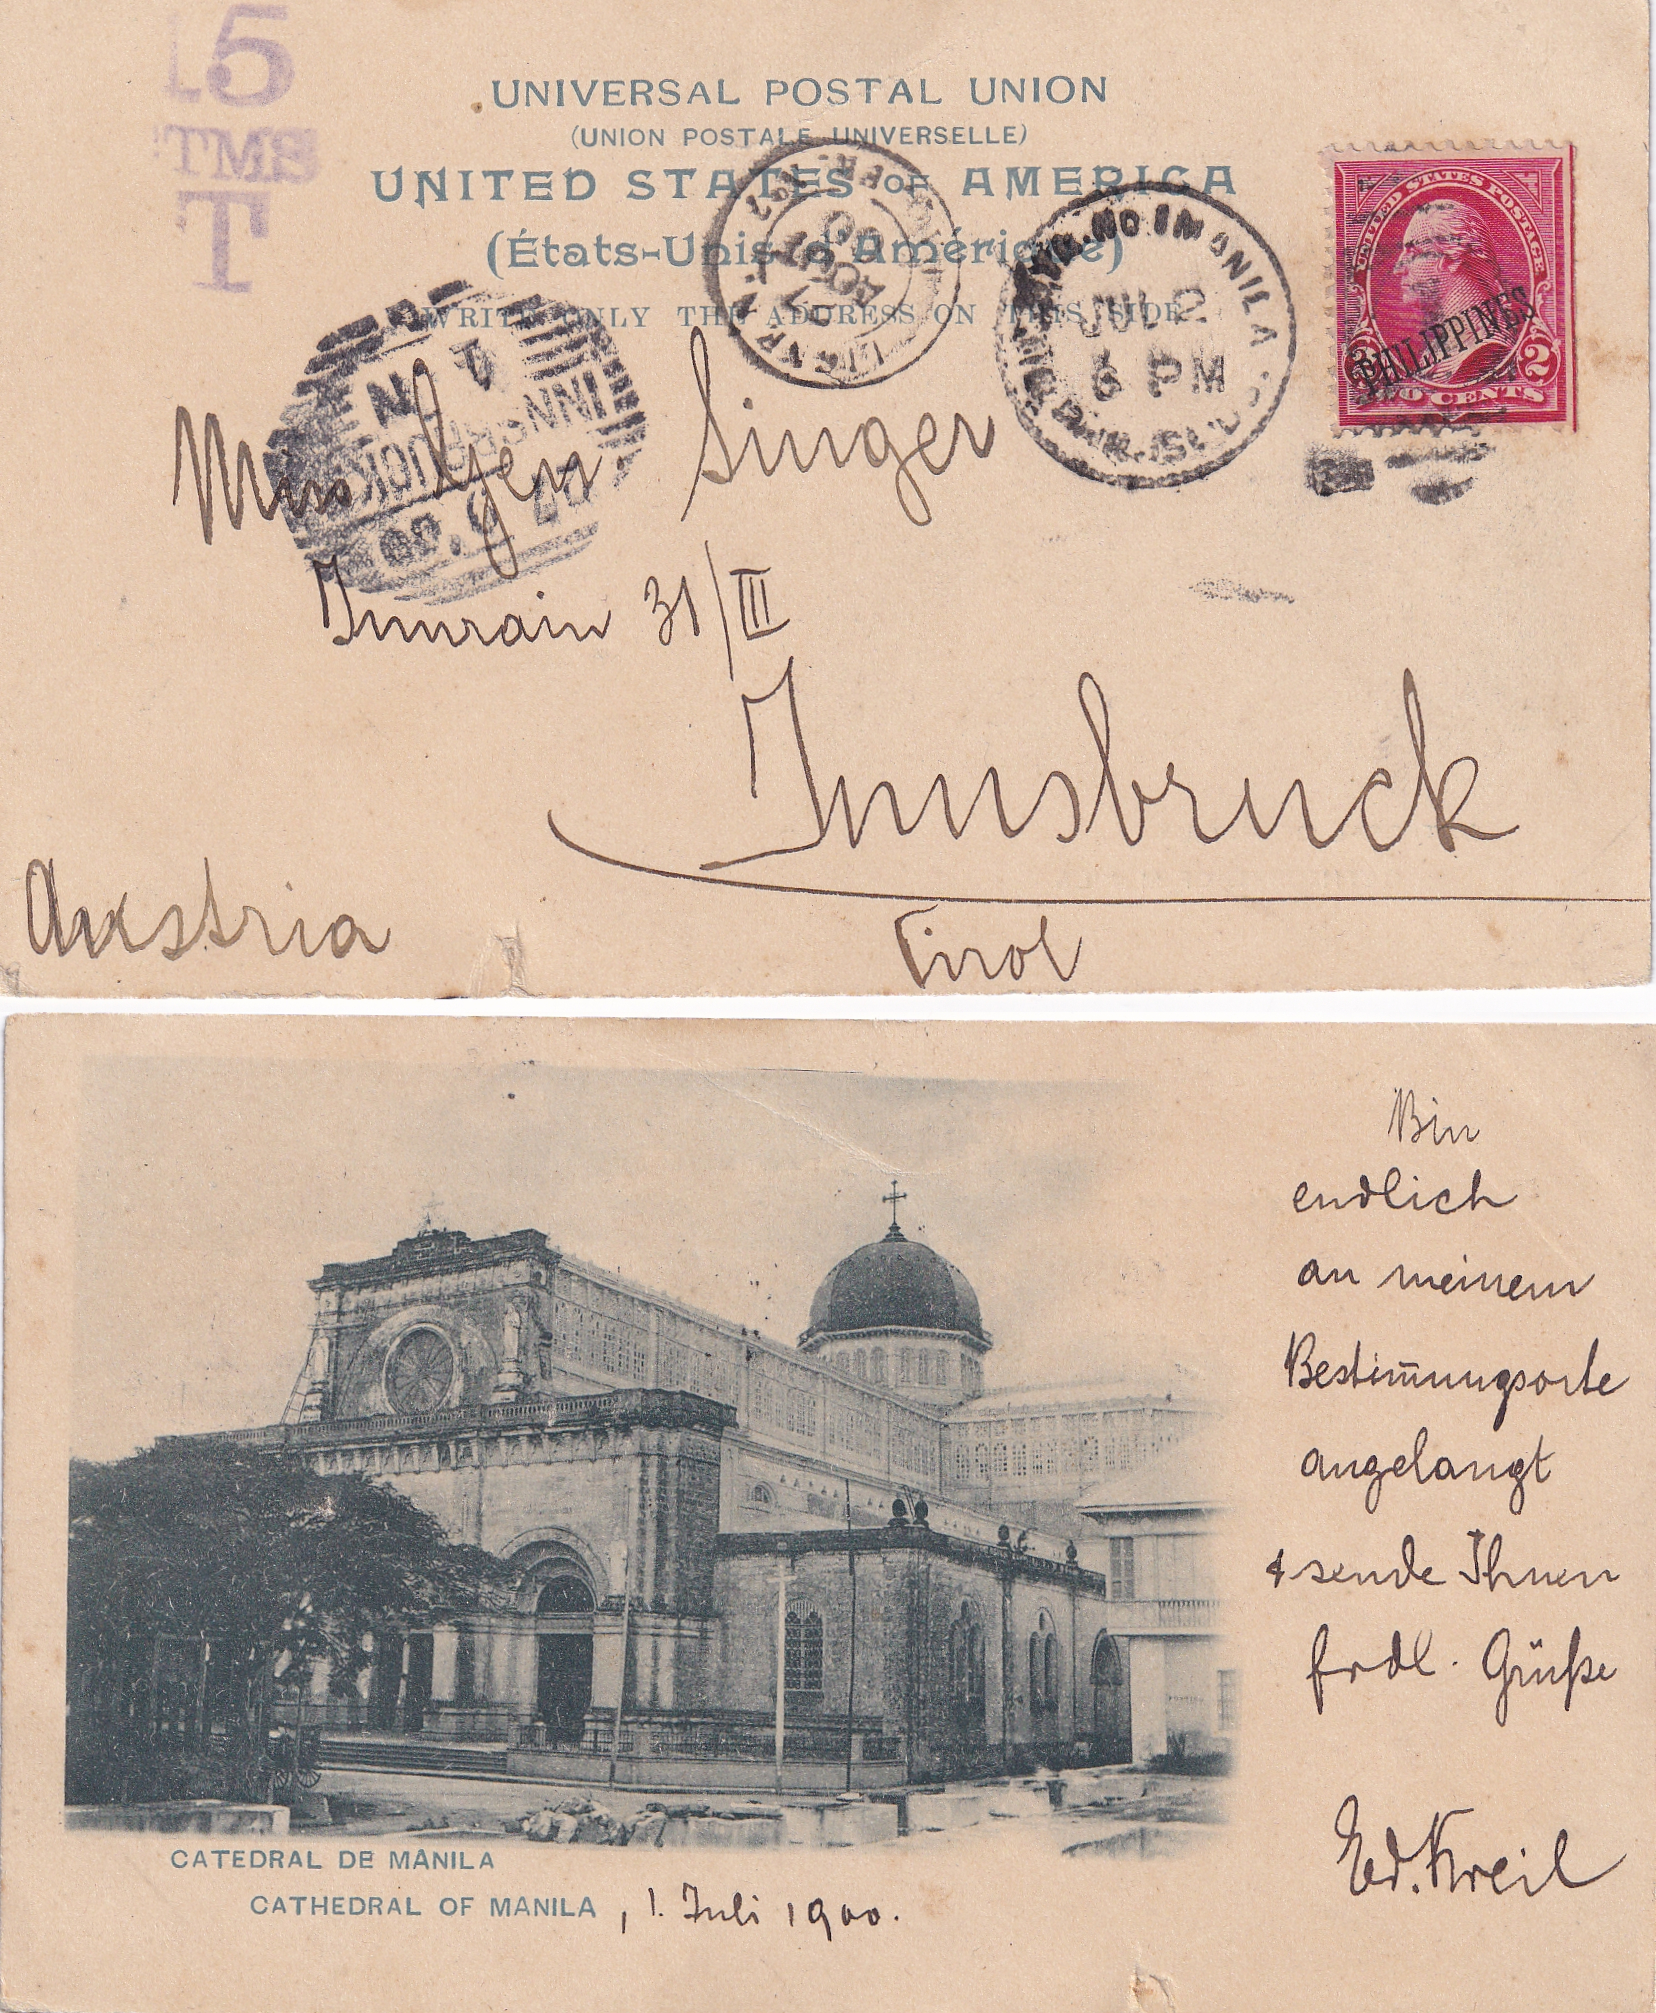 15
CTMS
T
UNIVERSAL POSTAL UNION
(UNION POSTALE UNIVERSELLE)
UNITED STATES OF AMERICA
(États-Unis d'Amérique)
WRITE ONLY THE ADDRESS ON THIS SIDE
7
AOUT
00
MANILA
JUL 2
6 PM
UNITED STATES POSTAGE
PHILIPPINES
2 2
TWO CENTS
INNSBRUCK
Miss Gen. Singer
Innrain 31/III
Innsbruck
Austria
Tirol
Bin
endlich
an meinem
Bestim̄ungsorte
angelangt
& sende Ihnen
frdl. Grüße
Ed. Kreil
CATEDRAL DE MÂNILA
CATHEDRAL OF MANILA, 1. Juli 1900.